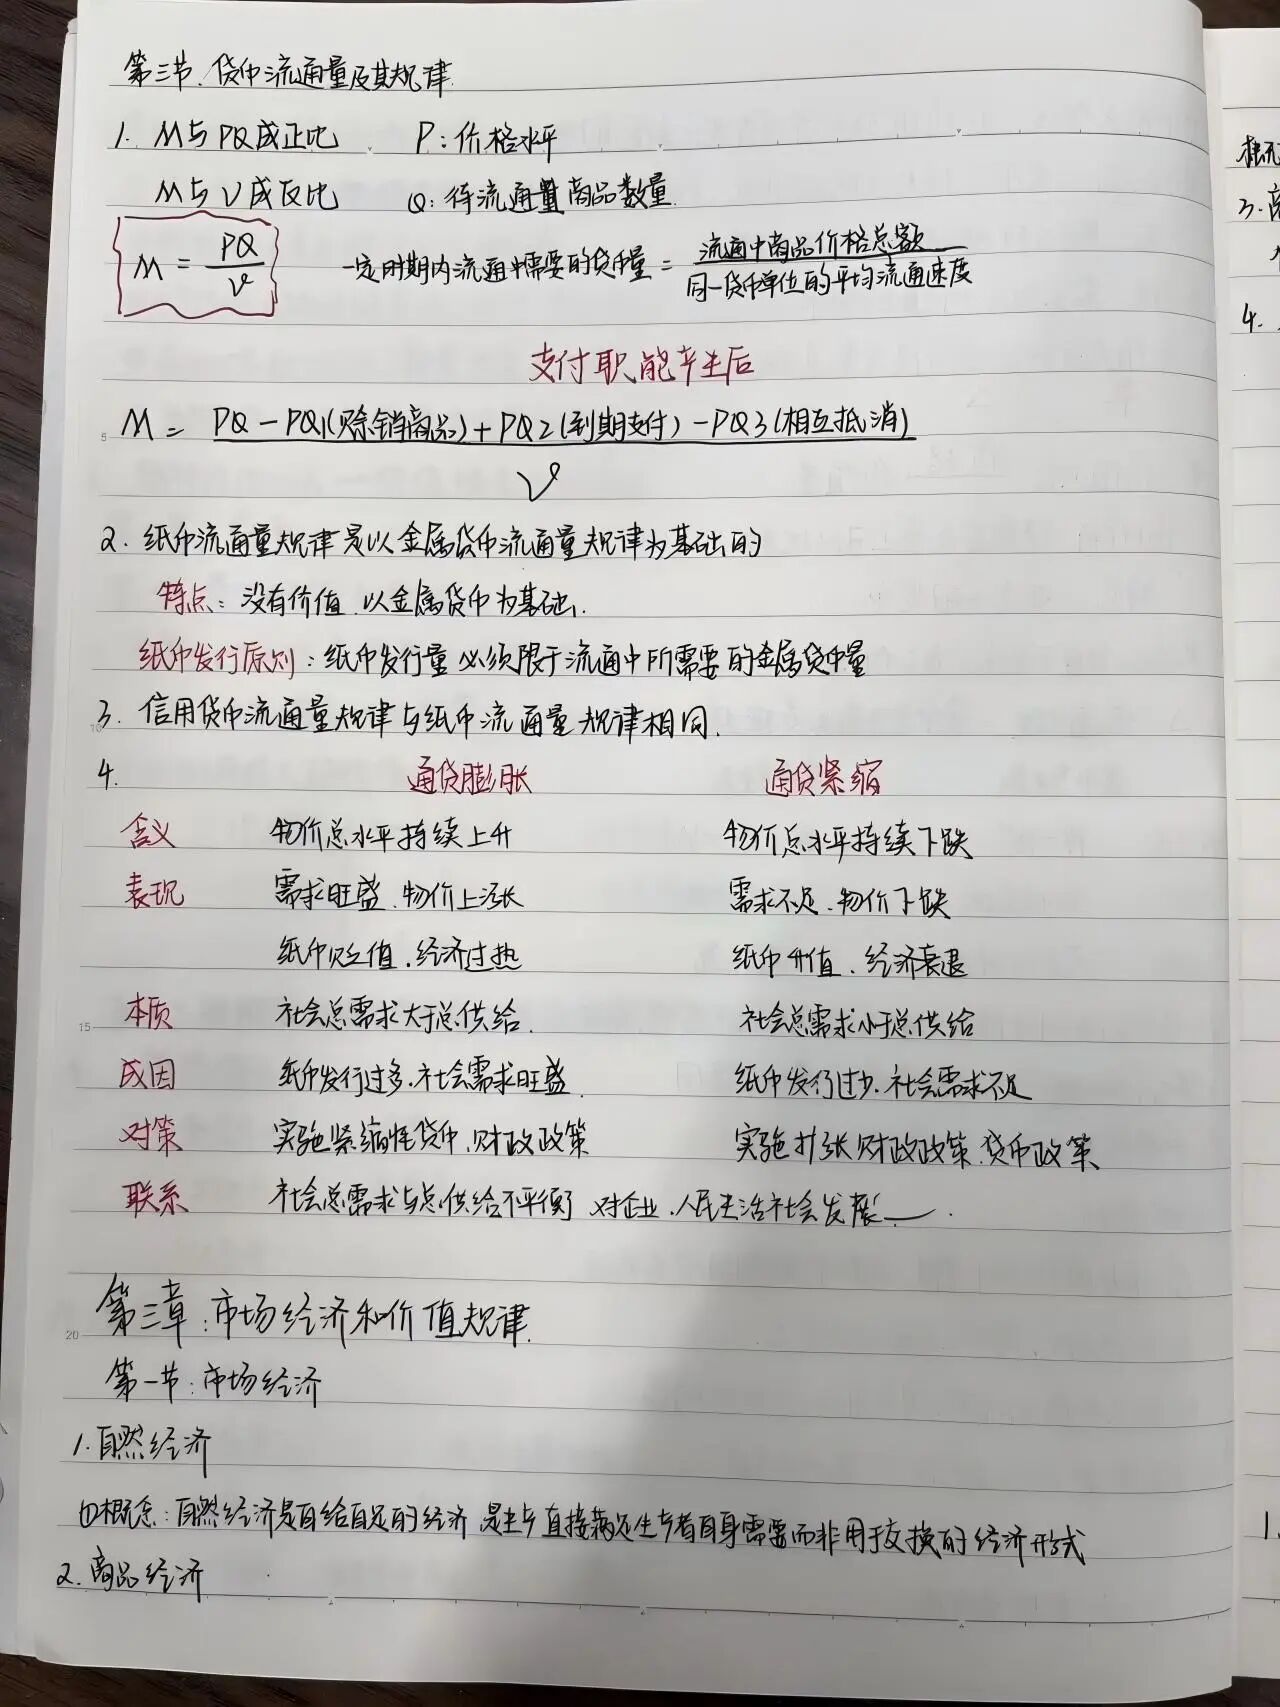 第三节.货币流通量及其规律
1. M与PQ成正比 P:价格水平
M与V成反比 Q:待流通量商品数量
M = PQ/V 一定时期内流通中需要的货币量 = 流通中商品价格总额/同一货币单位的平均流通速度
支付职能产生后
M = PQ-PQ1(赊销商品)+PQ2(到期支付)-PQ3(相互抵消)
V
2. 纸币流通量规律是以金属货币流通量规律为基础的
特点:没有价值.以金属货币为基础.
纸币发行原则:纸币发行量必须限于流通中所需要的金属货币量
3. 信用货币流通量规律与纸币流通量规律相同.
4. 通货膨胀 通货紧缩
含义 物价总水平持续上升 物价总水平持续下跌
表现 需求旺盛.物价上涨 需求不足.物价下跌
纸币贬值.经济过热 纸币升值.经济衰退
本质 社会总需求大于总供给. 社会总需求小于总供给
成因 纸币发行过多.社会需求旺盛. 纸币发行过少.社会需求不足
对策 实施紧缩性货币.财政政策 实施扩张财政政策.货币政策
联系 社会总需求与总供给不平衡 对企业.人民生活社会发展——.
第三章:市场经济和价值规律.
第一节:市场经济
1.自然经济
①概念:自然经济是自给自足的经济.是生产直接满足生产者自身需要而非用于交换的经济形式
2.商品经济
3.
4.
1.